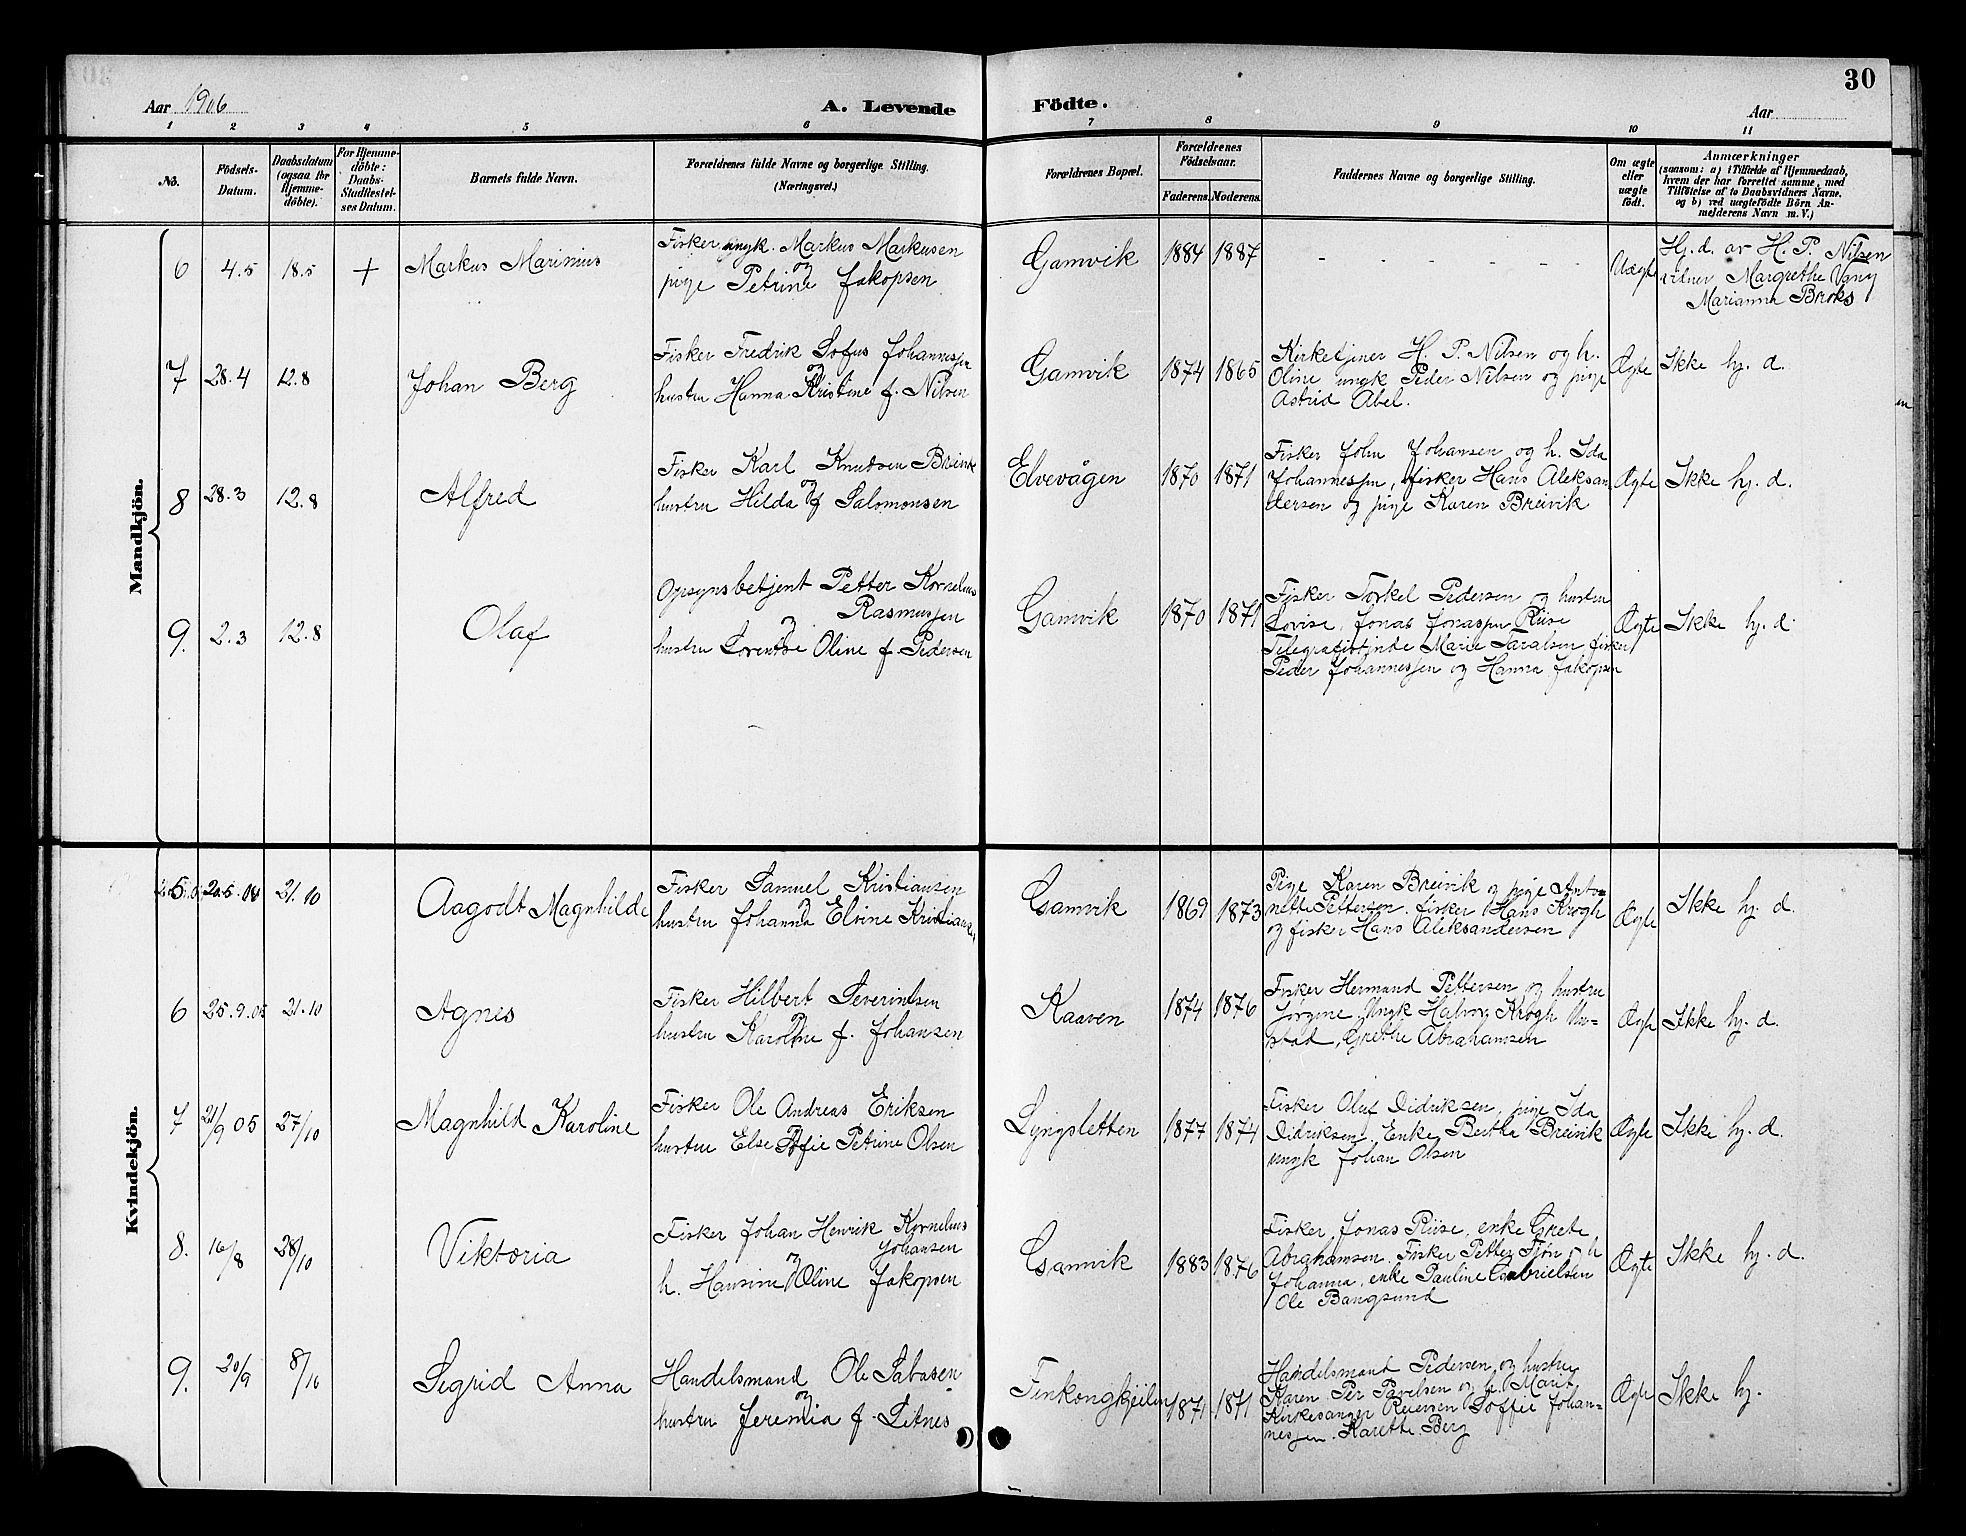 30
Aar 1906
A. Levende
Födte.
Aar
1 2 3 4 5 6 7 8 9 10 11
No.
Födsels-
Datum.
Daabsdatum
(ogsaa for
Hjemme-
döbte).
For Hjemme-
döbte:
Daabs-
Stadfæstel-
ses Datum.
Barnets fulde Navn.
Forældrenes fulde Navne og borgerlige Stilling.
(Næringsvei.)
Forældrenes Bopæl.
Forældrenes
Födselsaar.
Faderens.
Moderens.
Faddernes Navne og borgerlige Stilling.
Om ægte
eller
uægte
födt.
Anmærkninger
(saasom: a) i Tilfælde af Hjemmedaab,
hvem der har forrettet samme, med
Tilföielse af to Daabsvidners Navne,
og b) ved uægtefödte Börn An-
melderens Navn m. V.)
Mandkjön.
6 4.5 18.5 + Markus Marinius
Fisker ungk. Markus Markusen
og
pige Petrine Jakopsen
Gamvik 1884 1887
- - - - - -
Uægte
Hj. d. av H. P. Nilsen
vidner Margrethe Vang
Marianna Broks
7 28.4 12.8 Johan Berg
Fisker Fredrik Sofus Johannessen
og
hustru Hanna Kristine f. Nilsen
Gamvik 1874 1865
Kirketjener H. P. Nilsen og h.
Oline ungk Peder Nilsen og pige
Astrid Abel.
Ægte Ikke hj. d.
8 28.3 12.8 Alfred
Fisker Karl Knutsen Breivik
og
hustru Hilda f Salomonsen
Elvevågen 1870 1871
Fisker John Johansen og h. Ida
Johannessen, fisker Hans Aleksan
dersen og pige Karen Breivik
Ægte Ikke hj. d.
9. 2.3 12.8 Olaf
Opsynsbetjent Petter Kornelius
Rasmussen
og
hustru Lorentse Oline f. Pedersen
Gamvik 1870 1871
Fisker Torkel Pedersen og hustru
Lovise, Jonas Jonassen Riise
Telegrafistinde Marie Taralsen, fisker
Peder Johannessen og Hanna Jakopsen
Ægte Ikke hj. d.
Kvindekjön.
5 21.10 Aagodt Magnhilde
Fisker Samuel Kristiansen
og
hustru Johanna Elvine Kristiansen
Gamvik 1869 1873
Pige Karen Breivik og pige Anto-
nette Pettersen. fisker Hans Krogh
og fisker Hans Aleksandersen
Ægte Ikke hj. d.
6 25.9.05 21.10 Agnes
Fisker Hilbert Severintsen
og
hustru Karoline f. Johansen
Kaaven 1874 1876
Fisker Hermand Pettersen og hustru
Jörgine, Ungk Halvor Krogh
Grethe Abrahamsen
Ægte Ikke hj. d.
7 21/9 05 27/10 Magnhild Karoline
Fisker Ole Andreas Eriksen
og
hustru Else Sofie Petrine Olsen
Lyngsletten 1877 1874
Fisker Olaf Didriksen, pige Ida
Didriksen. Enke Berthe Breivik
ungk Johan Olsen
Ægte Ikke hj. d.
8. 16/8 28/10 Viktoria
Fisker Johan Henrik Kornelius
Johansen
og
h. Hansine Oline Jakopsen
Gamvik 1883 1876
Fisker Jonas Riise, enke Grete
Abrahamsen. Fisker Petter h
Johanna, enke Pauline Gabrielsen
Ole Bangsund
Ægte Ikke hj. d.
9. 20/9 8/10 Sigrid Anna
Handelsmand Ole Sabasen
og
hustru Jeremia f. Litnes
Finkongkjeilen 1871 1871
Handelsmand Pedersen og hustru
Karen Per Pavelsen og h. Marit
Kirkesanger Soffie Johan-
nessen. Karette Berg
Ægte Ikke hj.